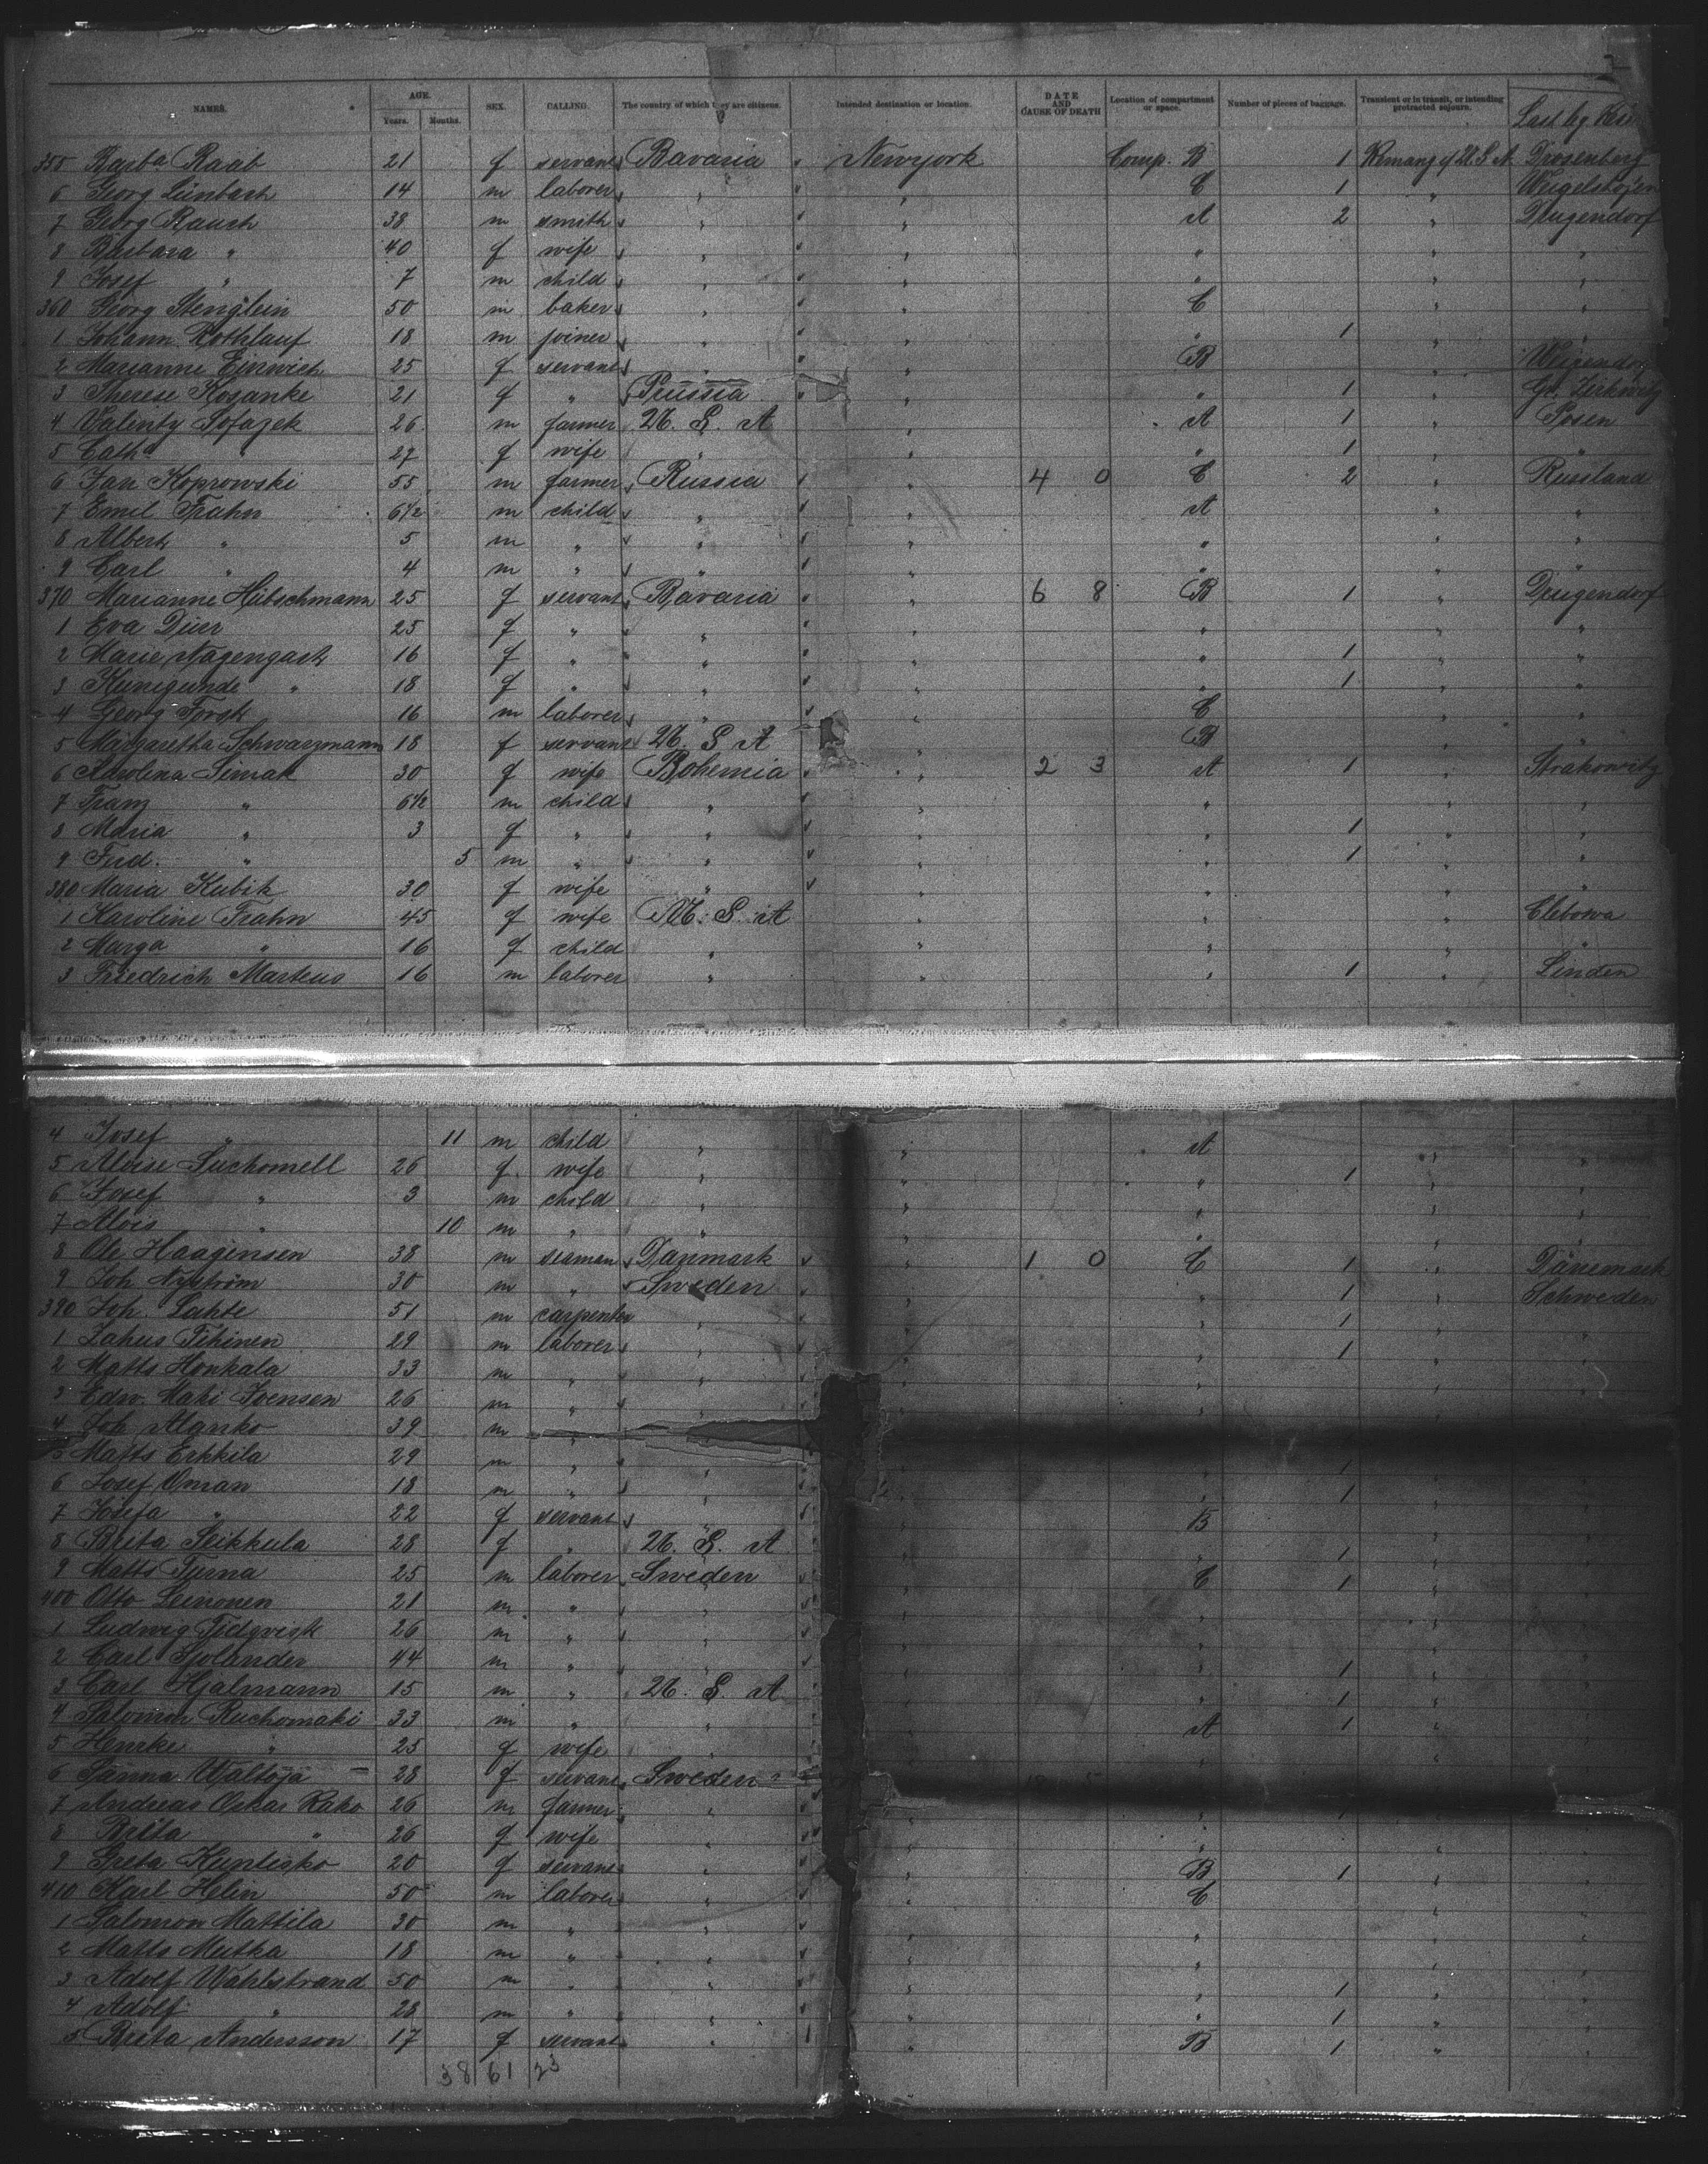 NAMES. AGE. SEX. CALLING. The country of which they are citizens. Intended destination or location. DATE AND CAUSE OF DEATH Location of compartment or space. Number of pieces of baggage. Transient or in transit, or intending protracted sojourn. Last
Years. Months.
355 Barba Raab 21 f servant Bavaria Newyork Comp. B 1 Drosenberg
6 Georg Leinbach 14 m laborer " " C 1 " Weigelshofen
7 Georg Rauch 38 m smith " " A 2 " Drugendorf
8 Barbara " 40 f wife " " " " "
9 Josef " 7 m child " " " " "
360 Georg Stenglein 50 m baker " " C " "
1 Johann Rothlauf 18 m joiner " " " 1 " "
2 Marianne Einwich 25 f servant " " B "
3 Therese Kosanke 21 f " Prussia " " 1 "
4 Valenty Sofazek 26 m farmer U. S. A " A 1 " Posen
5 Catha " 27 f wife " " " 1 " "
6 Jan Koprowski 55 m farmer Russia " 4 0 C 2 " Russland
7 Emil Frahn 6½ m child " " A " "
8 Albert " 5 m " " " " " "
9 Carl " 4 m " " " " " "
370 Marianne Hübschmann 25 f servant Bavaria " 6 8 B 1 " Drugendorf
1 Eva Dürr 25 f " " " " " "
2 Marie Nagengast 16 f " " " " 1 " "
3 Kunigunde " 18 f " " " " 1 " "
4 Georg Forsch 16 m laborer " " C " "
5 Margaretha Schwarzmann 18 f servant U. S A " B " "
6 Karolina Simak 30 f wife Bohemia " 2 3 A 1 " Strakowitz
7 Franz " 6½ m child " " " " "
8 Maria " 3 f " " " " 1 " "
9 Ferd. " 5 m " " " " 1 " "
380 Maria Kubik 30 f wife " " " " "
1 Karoline Frahn 45 f wife U. S. A " " " Clebowa
2 Marga " 16 f child " " " " "
3 Friedrich Martens 16 m laborer " " " 1 " Linden
4 Josef " 11 m child " " A " "
5 Aloise Suchomell 26 f wife " " " 1 " "
6 Josef " 3 m child " " " " "
7 Alois " 10 m " " " " " "
8 Ole Haagensen 38 m seaman Danmark " 1 0 C 1 " Dänemark
9 Joh Nyström 30 m " Sweden " " 1 " Schweden
390 Joh. Lahte 51 m carpenter " " " 1 " "
1 Zahus Tihinen 29 m laborer " " " 1 " "
2 Matts Honkala 33 m " " " " " "
3 Edw. Maki Joensen 26 m " " "
4 Joh Alanko 39 m "
5 Matts Erkkila 29 m " " " " 1 "
6 Josef Oman 18 m " " " " 1 "
7 Josefa " 22 f servant " " B " "
8 Brita Seikkula 28 f " U. S. A " " 1 " "
9 Matts Turna 25 m laborer Sweden " C 1 " "
400 Otto Leinonen 21 m " " " " " "
1 Ludwig Tidqvist 26 m " " " " " "
2 Carl Sjolander 44 m " " " " 1 " "
3 Carl Hjalmann 15 m " U. S. A " " 1 " "
4 Salomon Ruchomaki 33 m " " " A 1 " "
5 Henrke " 25 f wife " " " " "
6 Sanna Waltoja 28 f servant Sweden
7 Andreas Oskar Kako 26 m farmer " " 1 " "
8 Brita " 26 f wife " " " " "
9 Greta Kuntisko 20 f servant " " B 1 " "
410 Karl Helin 50 m laborer " " C " "
1 Salomon Mattila 30 m " " " " " "
2 Matts Mutka 18 m " " " " " "
3 Adolf Wahlstrand 50 m " " " " 1 " "
4 Adolf " 28 m " " " " 1 " "
5 Brita Andersson 17 f servant " " B 1 " "
38 61 23